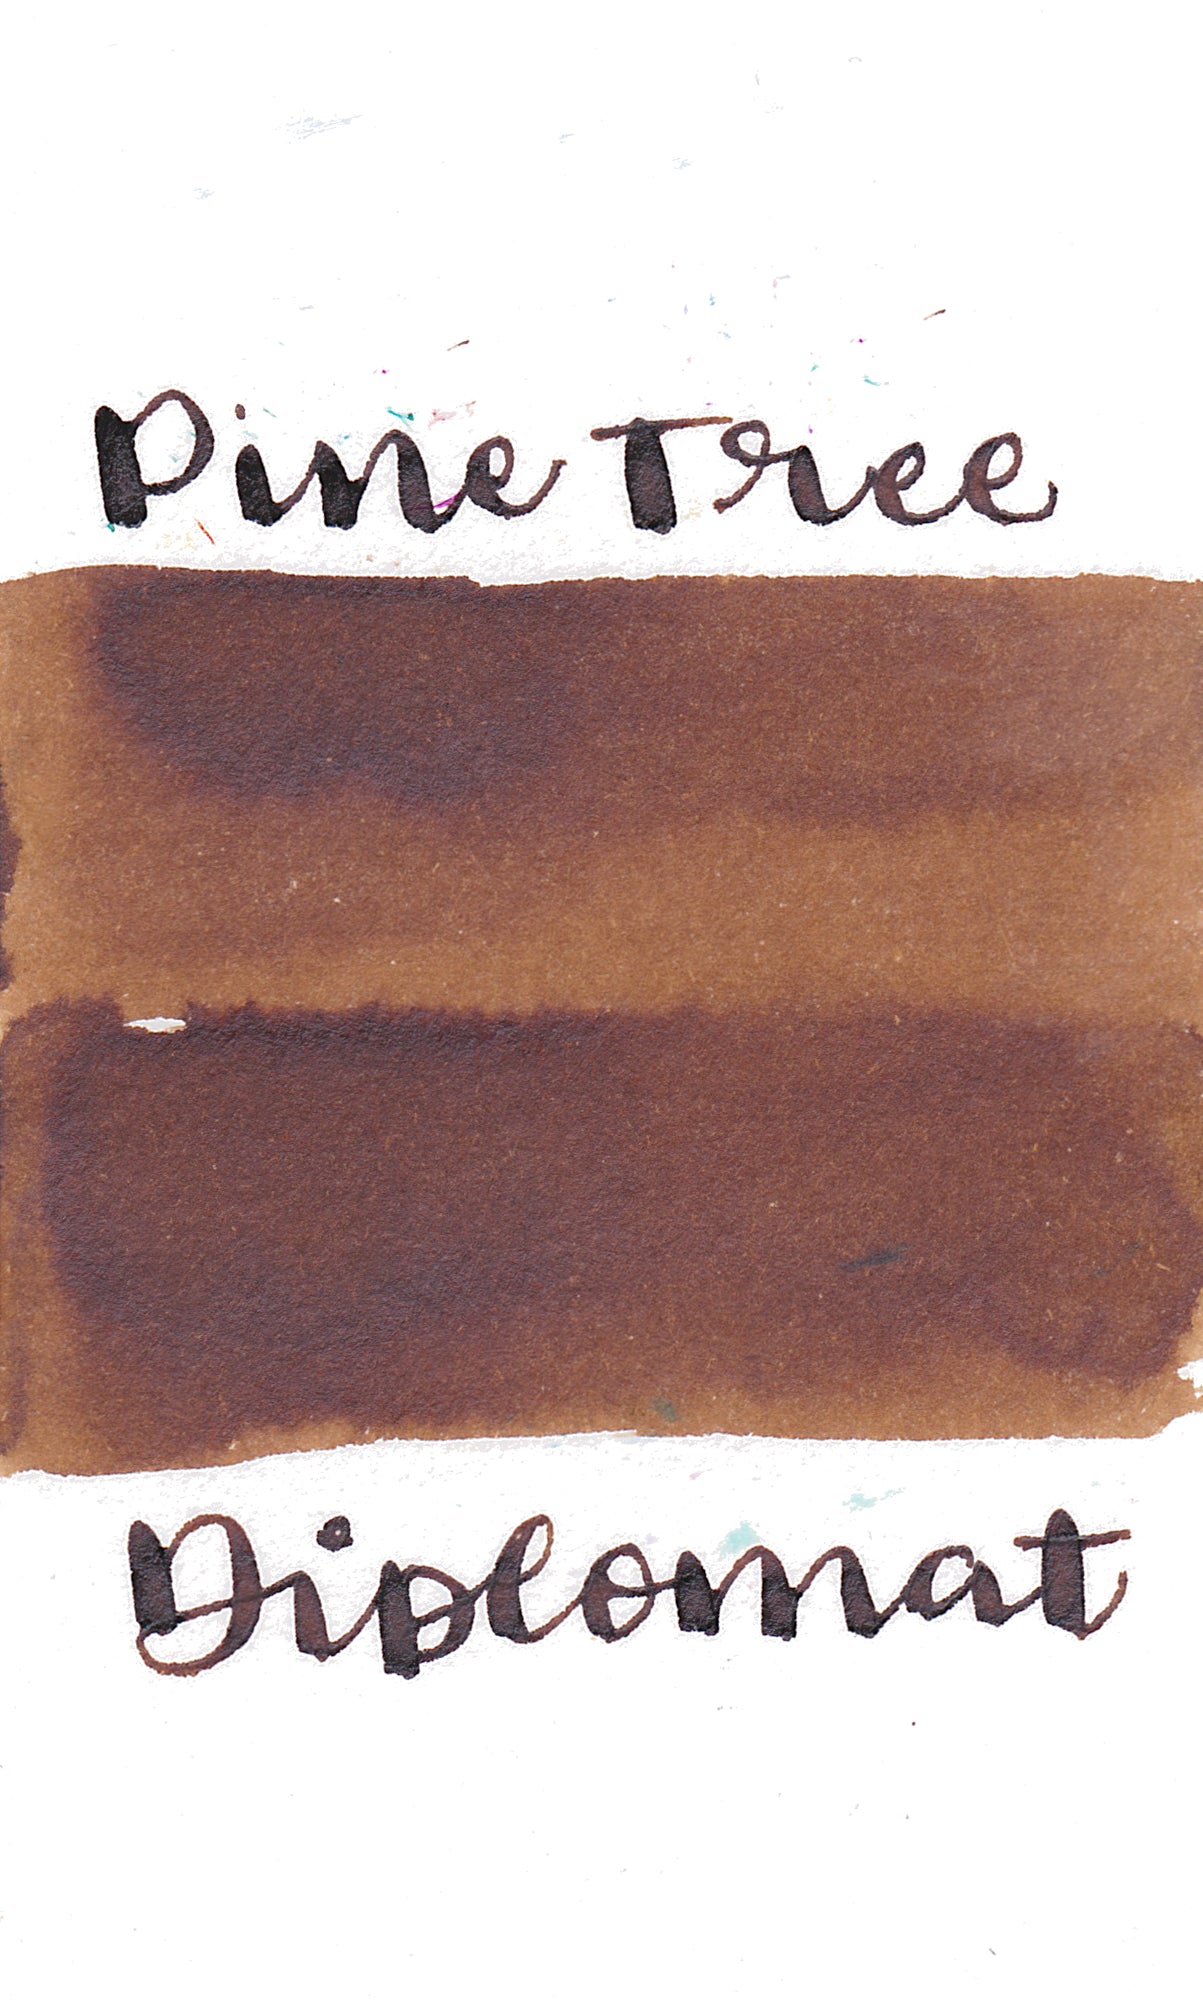 Pine Tree
Diplomat